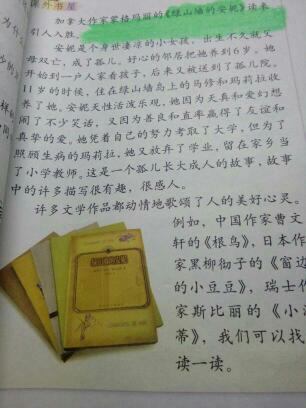 课外书屋
加拿大作家蒙格玛丽的《绿山墙的安妮》读来
引人入胜。
安妮是个身世凄凉的小女孩，出生不久就父
母双亡，成了孤儿。好心的邻居把她养到6岁。她
开始到一户人家看孩子，后来又被送到了孤儿院。
11岁的时候，住在绿山墙岛上的马修和玛莉拉收
养了她。安妮天性活泼乐观，她因为天真和爱幻想
闹了不少笑话，又因为善良和直率赢得了友谊和
真挚的爱。她凭着自己的努力考取了大学，但为了
照顾生病的玛莉拉，她又放弃了学业，留在家乡当
了小学教师。这是一个孤儿长大成人的故事，故事
中的许多描写很有趣，很感人。
许多文学作品都动情地歌颂了人的美好心灵。
例如，中国作家曹文
轩的《根鸟》，日本作
家黑柳彻子的《窗边
的小豆豆》，瑞士作
家斯比丽的《小海
蒂》，我们可以找
读一读。
绿山墙的安妮